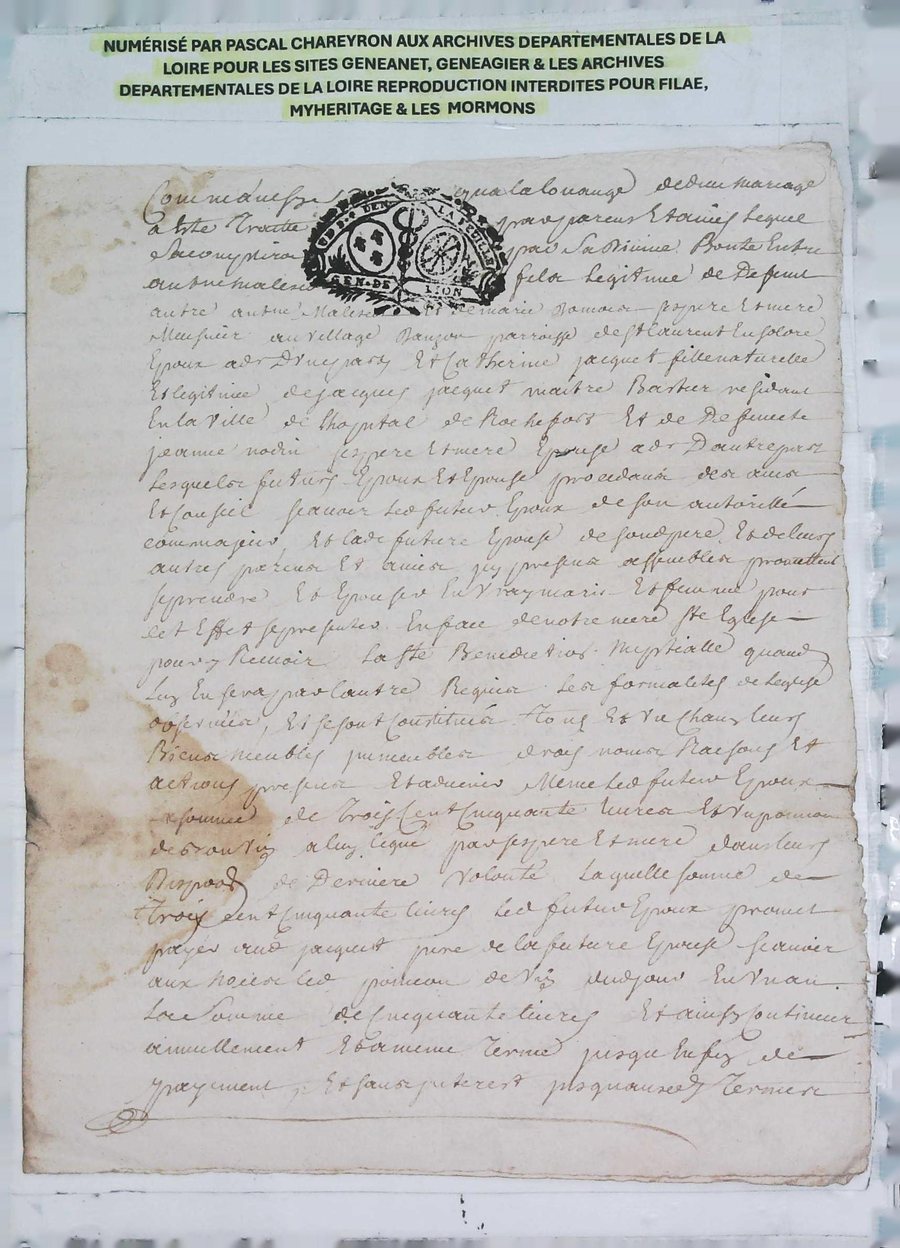 NUMÉRISÉ PAR PASCAL CHAREYRON AUX ARCHIVES DEPARTEMENTALES DE LA
LOIRE POUR LES SITES GENEANET, GENEAGIER & LES ARCHIVES
DEPARTEMENTALES DE LA LOIRE REPRODUCTION INTERDITES POUR FILAE,
MYHERITAGE & LES MORMONS
Comme ainsy soit qua la louange de dieu mariage
a esté Traitté par parens Et amis Leque
Sacomplira par La Divine Bonté Entre
fils Legitime de Defunt
DEN LA FEUILLE
GEN. DE LION
autre et de marie
Meusnier au village parroisse de St Laurent En Solore
Epoux adr Dunepart Et Catherine jacquet fille naturelle
Et legitime de jacques jacquet maitre residant
En la Ville de Lhopital de Rochefort Et de Defuncte
jeanne nodin ses pere Et mere Epouse adr Dautre part
Lesquels futurs Epoux Et Epouse procedans de
Et Conseil scavoir led futur Epoux de son autorité
comme majeur Et lade future Epouse de sond pere Et de leurs
autres parens Et amis icy presens assembles promettent
se prendre Et Epouser En Vray mary Et femme pour
cet Effet se presenter En face de notre mere Ste Eglise
pour y Recevoir La Ste Benediction Nuptialle quand
Luy En sera par lautre Requis Les formalités de Leglise
observées, Et se sont Constitués Tous Et Un Chaun leurs
Biens meubles immeubles droits noms Raisons Et
actions presens Et advenir Meme led futur Epoux
somme de Trois Cent Cinquante livres Et un
a luy legué par ses pere Et mere dans leurs
de Derniere Volonté Laquelle somme de
Trois Cent Cinquante livres led futur Epoux promet
payer aud jacquet pere de la future Epouse scavoir
led poincon de Vin dudjour En Un an
La Somme de Cinquante livres Et ainsy Continuer
annuellement Et a meme Terme jusque En fin de
payement, Et sans interest jusquausd Termes